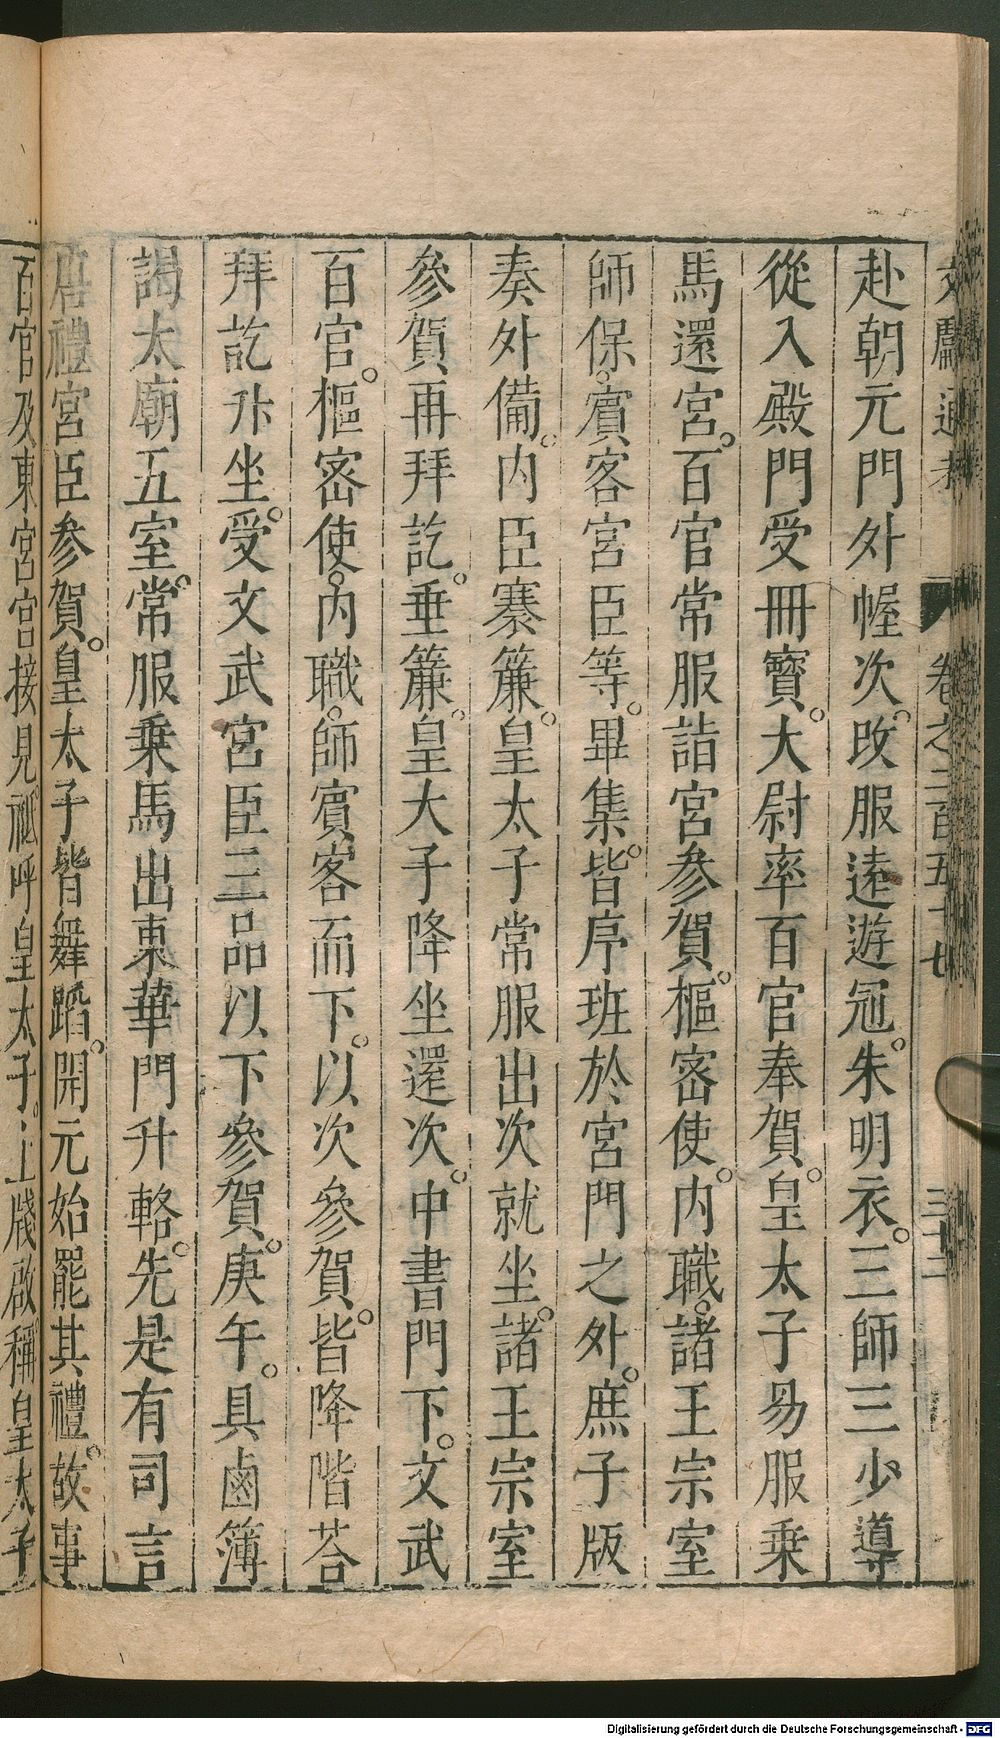 文獻通考 卷之二百五十七 三十三
赴朝元門外幄次改服遠遊冠朱明衣三師三少導
從入殿門受冊寶大尉率百官奉賀皇太子易服乗
馬還宮百官常服詣宮參賀樞密使内職諸王宗室
師保賓客宮臣等畢集皆序班於宮門之外庶子版
奏外備内臣褰簾皇太子常服出次就坐諸王宗室
參賀再拜訖垂簾皇大子降坐還次中書門下文武
百官樞密使内職師賓客而下以次參賀皆降階荅
拜訖升坐受文武宮臣三品以下參賀庚午具鹵簿
謁太廟五室常服乗馬出東華門升輅先是有司言
唐禮宮臣參賀皇太子皆舞蹈開元始罷其禮故事
百官及東宮宮接見祗呼皇太子上牋啟稱皇太子
Digitalisierung gefördert durch die Deutsche Forschungsgemeinschaft - DFG